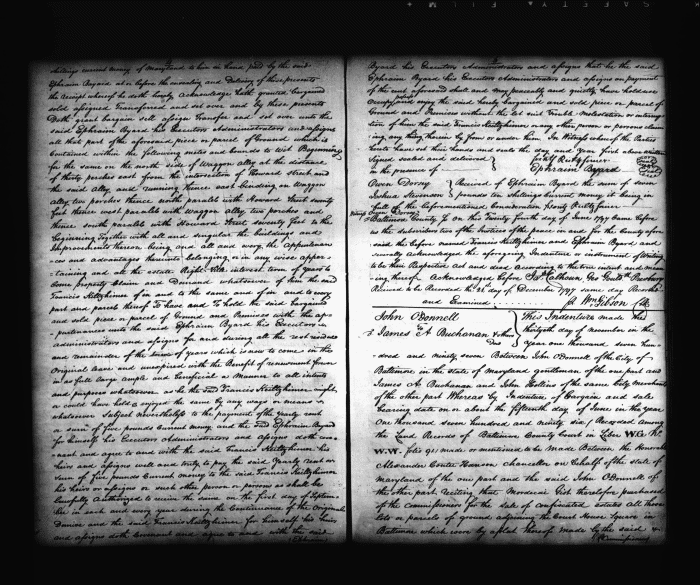 shillings current money of Maryland to him in hand paid by the said
Ephraim Byard at or before the ensealing and Delivery of these presents
the receipt whereof he doth hereby Acknowledge hath granted bargained
sold assigned Transferred and set over and by these presents
Doth grant bargain sell assign Transfer and set over unto the
said Ephraim Byard his Executors Administrators and assigns
all that part of the aforesaid piece or parcel of Ground which is
Contained within the following metes and bounds to Wit Beginning
for the same on the north side of Waggon alley at the distance
of thirty perches east from the intersection of Howard street and
the said Alley, and running thence east bending on Waggon
alley two perches thence north parallel with Howard Street seventy
feet thence west parallel with Waggon alley two perches and
thence south parallel with Howard Street seventy feet to the
beginning Together with all and singular the buildings and
improvements thereon being and all and every the Appurtenan
ces and advantages thereunto belonging or in any wise apper
taining and all the estate Right title interest term of years to
come property Claim and Demand whatsoever of him the said
Francis Kuttzheimer of in and to the same and of in and to every
part and parcel thereof To have and To hold the said bargained
and sold piece or parcel of Ground and Premises with the ap
purtenances unto the said Ephraim Byard his Executors
administrators and assigns for and during all the rest residue
and remainder of the term of years which is now to come in the
Original lease and unexpired with the Benefit of renewment forever
in as full large ample and beneficial a Manner to all intents
and purposes whatsoever as he the said Francis Kuttzheimer might
or could have held or enjoyed the same by any ways or means
whatsoever Subject Nevertheless to the payment of the yearly rent
or sum of five pounds Current money and the said Ephraim Byard
for himself his Executors Administrators and assigns doth cove
nant and agree to and with the said Francis Kuttzheimer his
heirs and assigns well and truly to pay the said Yearly rent or
Sum of five pounds Current money to the said Francis Kuttzheimer
his heirs or assigns or such other person or persons as shall be
lawfully Authorized to receive the same on the first day of Septem
ber in each and every year during the Continuance of the Original
Demise and the said Francis Kuttzheimer for himself his heirs
and assigns doth Covenant and agree to and with the said
Byard his Executors Administrators and assigns that he the said
Ephraim Byard his Executors Administrators and assigns on payment
of the rent aforesaid shall and may peaceably and quietly have hold use
occupy and enjoy the said hereby bargained and sold piece or parcel of
Ground and Premises without the let suit Trouble Molestation or interrup
tion of him the said Francis Kuttzheimer or any other person or persons claim
ing any thing therein by from or under him In Witness whereof the Parties
hereto have set their hands and seals the day and year first above written
Signed sealed and delivered
in the presence of
Ephraim Byard
Owen Dorsey
Joshua Stevenson
Received of Ephraim Byard the sum of seven
pounds ten shillings Current money it being in
full of the aforementioned Consideration
Owen Dorsey
Baltimore County Ss on this Twenty fourth day of June 1797 came before
us the subscribers two of the Justices of the peace in and for the County afore
said the before named Francis Kuttzheimer and Ephraim Byard and
severally acknowledged the aforegoing Indenture or instrument of Writing
to be their Respective Act and deed According to the true intent and mean
ing thereof Acknowledged before Jas Calhoun, Geo
Received to be Recorded the 21st day of December 1797 same day Recorded
and Examined
Wm Gibson Clk
John ODonnell
to
James A Buchanan & other
Deed
This Indenture made the
thirtyth day of november in the
year one thousand seven hun
dred and ninety seven Between John ODonnell of the City of
Baltimore in the state of Maryland gentleman of the one part and
James A. Buchanan and John Hollins of the same City Merchants
of the other part Whereas by Indenture of Bargain and sale
bearing date on or about the fifteenth day of June in the year
One thousand seven hundred and ninety six / Recorded Among
the Land Records of Baltimore County Court in Liber W.G. No
W.W. folio 91 made or mentioned to be Made Between the Honorable
Alexander Contee Hanson Chancellor on behalf of the state of
Maryland of the one part and the said John ODonnell of
the other part Reciting that Mordecai Gist theretofore purchased
of the Commissioners for the sale of confiscated estates all those
lots or parcels of ground adjoining the Court House Square in
Baltimore which were by a plat thereof made by the said